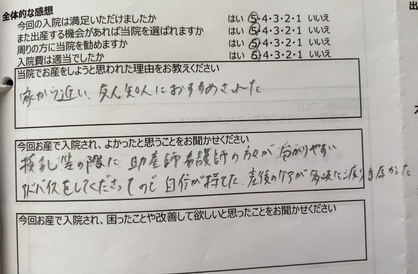 全体的な感想
今回の入院は満足いただけましたか はい 5・4・3・2・1 いいえ
また出産する機会があれば当院を選ばれますか はい 5・4・3・2・1 いいえ
周りの方に当院を勧めますか はい 5・4・3・2・1 いいえ
入院費は適当でしたか はい 5・4・3・2・1 いいえ
当院でお産をしようと思われた理由をお教えください
家から近い、友人知人におすすめされた
今回お産で入院され、よかったと思うことをお聞かせください
授乳等の際に助産師看護師の方々が分かりやすい
アドバイスをしてくださったので自信が持てた。産後のケアが多岐に渡り手厚かった
今回お産で入院され、困ったことや改善して欲しいと思ったことをお聞かせください